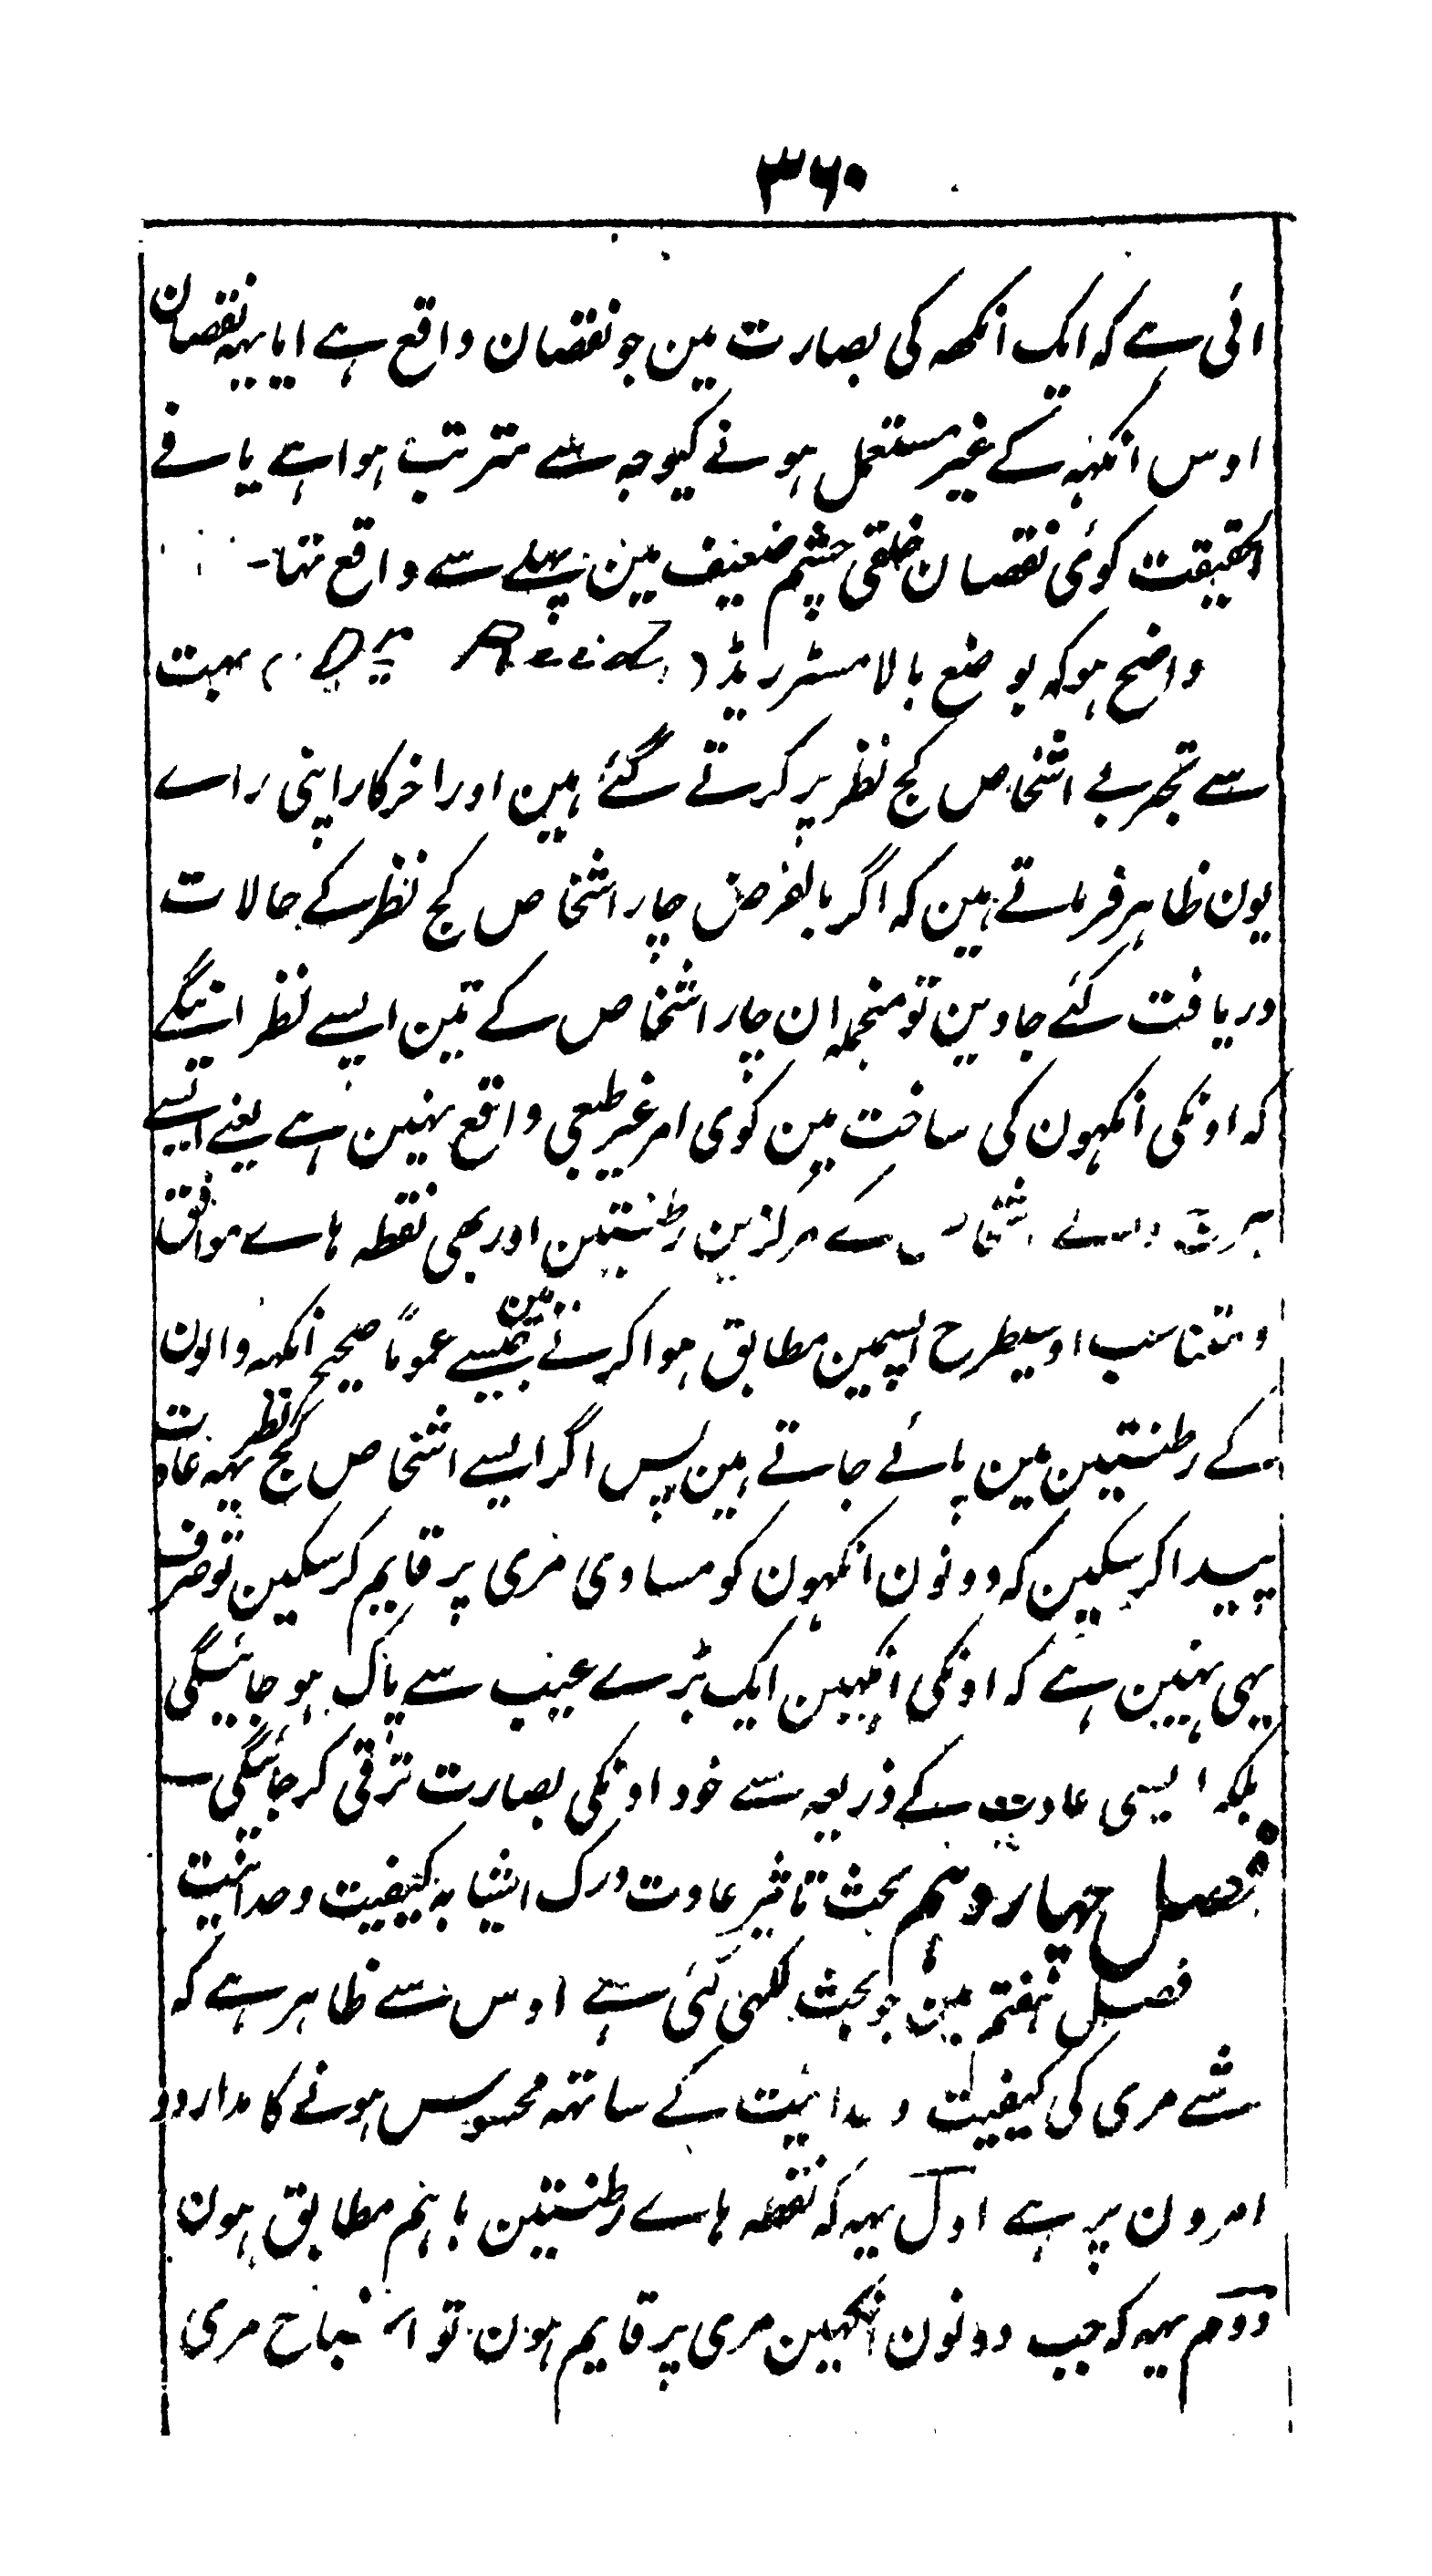 ۳۶۰
ائی ہے کہ ایک انکھہ کی بصارت مین جو نقصان واقع ہے ایا یہہ نقصان
اوس انکہہ کے غیر مستعمل ہونے کیوجہ سے مترتب ہوا ہے یا فے
الحقیقت کوئی نقصان خلقی چشم ضعیف مین پہلے سے واقع تہا۔
واضح ہو کہ بوضع بالا مسٹر ریڈ ( Dr Reid ) بہت
سے تجربے اشخاص کج نظر پر کرتے گئے ہین اور اخر کار اپنی راے
یون ظاہر فرماتے ہین کہ اگر بالفرض چار اشخاص کج نظر کے حالات
دریافت کئے جاوین تو منجملہ ان چار اشخاص کے تین ایسے نظر ائینگے
کہ اونکی انکہون کی ساخت مین کوی امر غیر طبعی واقع نہین ہے یعنے ایسے
اشخاص کے مرکزین رطنتین اور بھی نقطہ ہاے موافق
و متناسب اوسیطرح اپسمین مطابق ہوا کرتے ہین جیسے عموماً صحیح انکہہ والون
کے رطنتین مین پائے جاتے ہین پس اگر ایسے اشخاص کج نظر یہہ عادت
پیدا کر سکین کہ دونون انکہون کو مساوی مری پر قایم کر سکین تو صرف
یہی نہین ہے کہ اونکی انکہین ایک بڑے عیب سے پاک ہو جائینگی
بلکہ ایسی عادت کے ذریعہ سے خود اونکی بصارت ترقی کر جائیگی۔
فصل چہاردہم بحث تاثیر عادت درک اشیا بہ کیفیت وحدانیت
فصل ہفتم مین جو بحث لکہی گئی ہے اوس سے ظاہر ہے کہ
شے مری کی کیفیت وحدانیت کے ساتہہ محسوس ہونے کا مدار دو
امرون پر ہے اول یہہ کہ نقطہ ہاے رطنتین باہم مطابق ہون
دوم یہہ کہ جب دونون انکہین مری پر قایم ہون تو اشباح مری